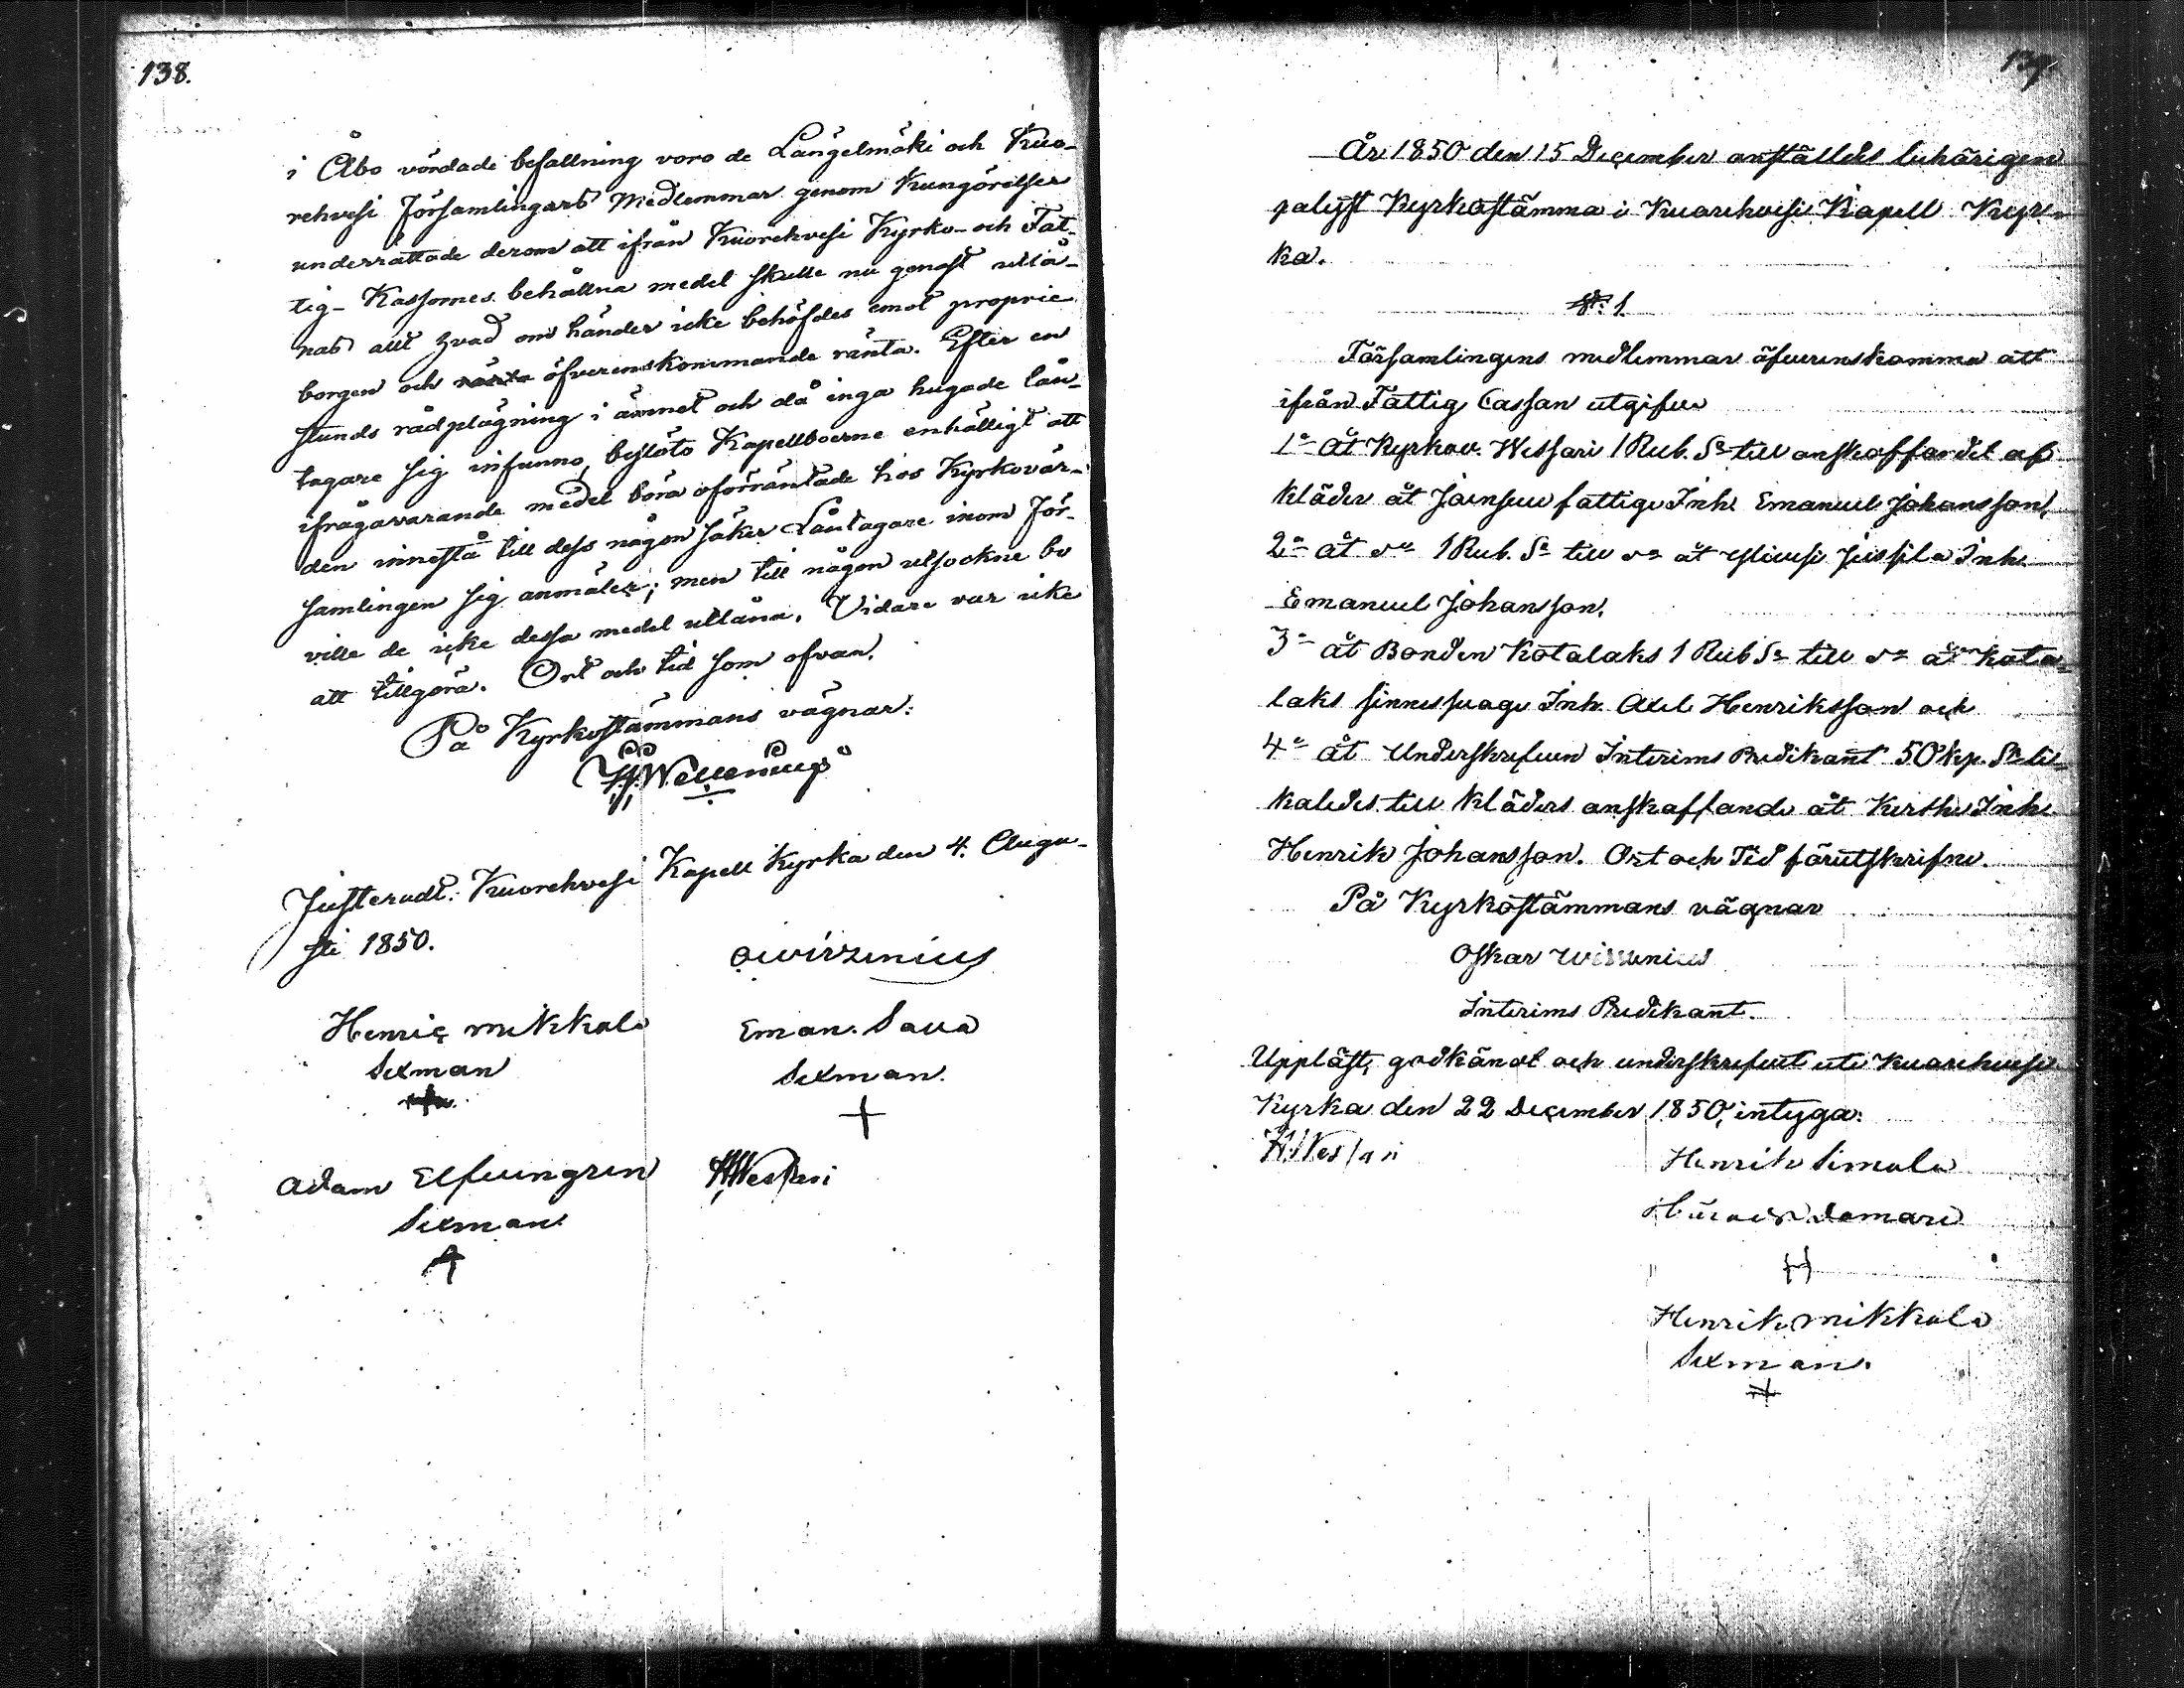 138.
i Åbo vördade befallning voro de Längelmäki och Kuo-
rehvesi Församlingars Medlemmar genom Kungörelser
underrättade derom att ifrån Kuorehvesi Kyrko- och Fat-
tig- Kassornes behållna medel skulle nu genast utlå-
nas allt hvad om händer icke behöfdes emot proprie
borgen och öfverenskommande ränta. Efter en
stunds rådplägning i ämnet och då inga hugade lån-
tagare sig infunno, beslöto Kapellboerne enhälligt att
ifrågavarande medel böra oförräntade hos Kyrkovär-
den innestå till dess någon säker Låntagare inom För-
samlingen sig anmäler; men till någon utsockne bo
ville de icke dessa medel utlåna. Vidare var icke
att tillgöra. Ort och tid som ofvan.
På Kyrkostämmans vägnar:
Justeradt: Kuorehvesi Kapell Kyrka den 4. Augu-
sti 1850.
OWirzenius
Henric Mikkola
Sexman
Eman. Sava
Sexman.
+
Adam Elfvengren
Sexman
HWessari
139.
År 1850 den 15 December anställdes behörigen
palyst Kyrkostämma i Kuorehvesi Kapell Kyr-
ka.
§. 1.
Församlingens medlemmar öfverenskommo att
ifrån Fattig Cassan utgifva
1o åt Kyrkov. Wessari 1 Rub. Sr till anskaffandet af
kläder åt fattige Inh. Emanuel Johansson,
2o åt do 1 Rub. Sr till do åt Jussila Inh.
Emanuel Johansson.
3o åt Bonden Kotalaks 1 Rub Sr till do åt Kota-
laks sinnessvage Inh. Axel Henriksson och
4o åt Underskrefven Interims Predikant 50 kp. Sr li-
kaledes till kläders anskaffande åt Inh.
Henrik Johansson. Ort och Tid förutskrifne.
På Kyrkostämmans vägnar
Oskar Wirzenius
Interims Predikant.
Uppläst, godkändt och underskrefvet uti Kuorehvesi
Kyrka den 22 December 1850, intyga:
H.Wessari
Henrik Simola
Henrik Mikkola
Sexman.